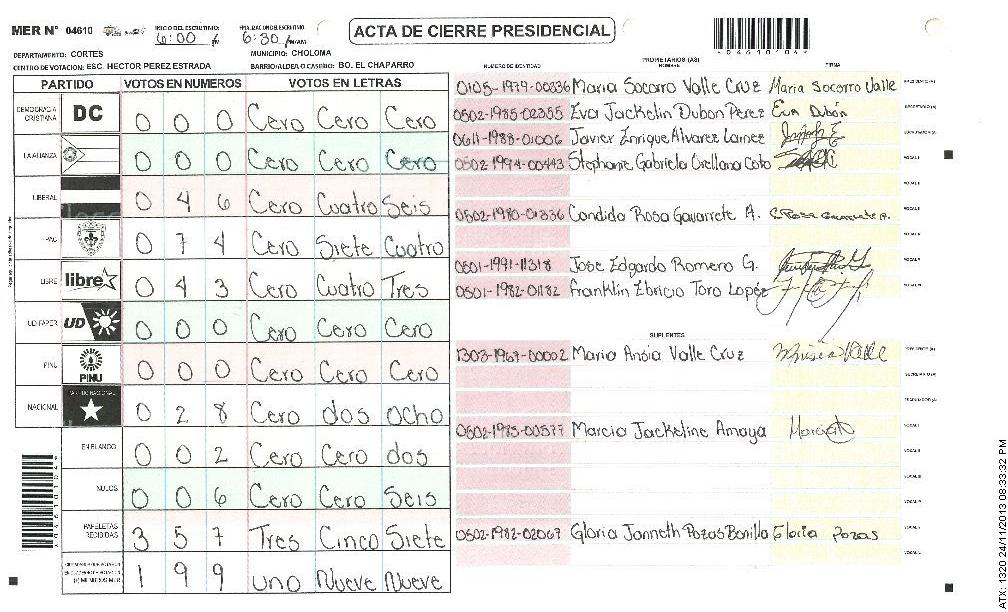 MER N° 04610
INICIO DEL ESCRUTINIO: 6:00 P
FINALIZACION DEL ESCRUTINIO 6:30 P AM/PM
ACTA DE CIERRE PRESIDENCIAL
DEPARTAMENTO: CORTES MUNICIPIO: CHOLOMA
CENTRO DE VOTACION: ESC. HECTOR PEREZ ESTRADA BARRIO/ALDEA O CASERIO: BO. EL CHAPARRO
PARTIDO VOTOS EN NUMEROS VOTOS EN LETRAS
DEMOCRACIA CRISTIANA DC 0 0 0 Cero Cero Cero
LA ALIANZA 0 0 0 Cero Cero Cero
LIBERAL 0 4 6 Cero Cuatro Seis
PAC 0 7 4 Cero Siete Cuatro
LIBRE libre 0 4 3 Cero Cuatro Tres
UD-FAPER UD 0 0 0 Cero Cero Cero
PINU PINU 0 0 0 Cero Cero Cero
NACIONAL PARTIDO NACIONAL 0 2 8 Cero dos ocho
EN BLANCO 0 0 2 Cero Cero dos
NULOS 0 0 6 Cero Cero Seis
PAPELETAS RECIBIDAS 3 5 7 Tres Cinco Siete
1 9 9 uno Nueve Nueve
PROPIETARIOS (AS)
NUMERO DE IDENTIDAD NOMBRE FIRMA
0105-1979-00336 Maria Socorro Valle Cruz Maria Socorro Valle PRESIDENTE (A)
0502-1985-02355 Eva Jackelin Dubon Perez Eva Dubón SECRETARIO (A)
0611-1988-01006 Javier Enrique Alvarez Lainez ESCRUTADOR (A)
0502-1994-00443 Stephanie Gabriela Orellana Coto VOCAL I
VOCAL II
0502-1980-01336 Candida Rosa Gavarrete A. C Rosa Gavarrete A. VOCAL III
VOCAL IV
0501-1991-11318 Jose Edgardo Romero G. VOCAL V
0501-1982-01182 Franklin Ebricio Toro Lopéz VOCAL VI
SUPLENTES
1303-1967-00002 Maria Ansia Valle Cruz PRESIDENTE (A)
SECRETARIO (A)
ESCRUTADOR (A)
0502-1985-00577 Marcia Jackeline Amaya VOCAL I
VOCAL II
VOCAL III
VOCAL IV
0502-1982-02067 Gloria Janneth Pozas Bonilla Gloria Pozas VOCAL V
ATX: 1320 24/11/2013 08:33:32 PM